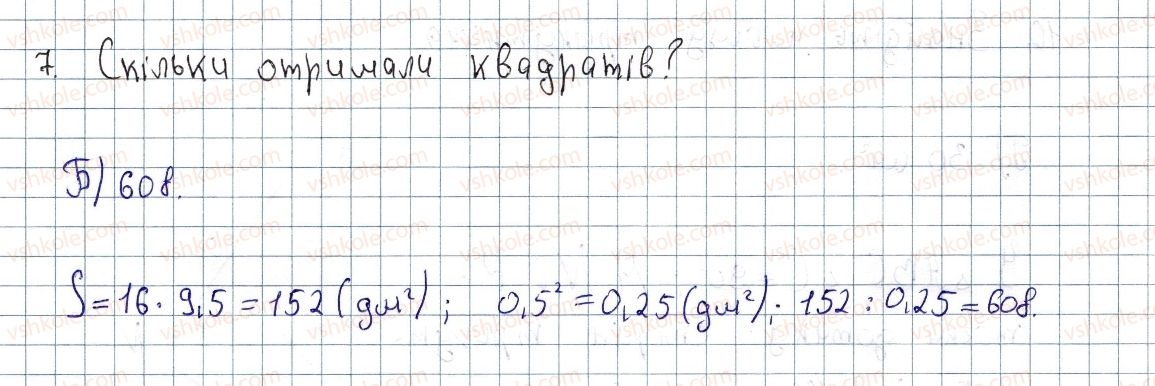 7. Скільки отримали квадратів?
Б) 608.
S = 16 · 9,5 = 152 (дм²); 0,5² = 0,25 (дм²); 152 : 0,25 = 608.